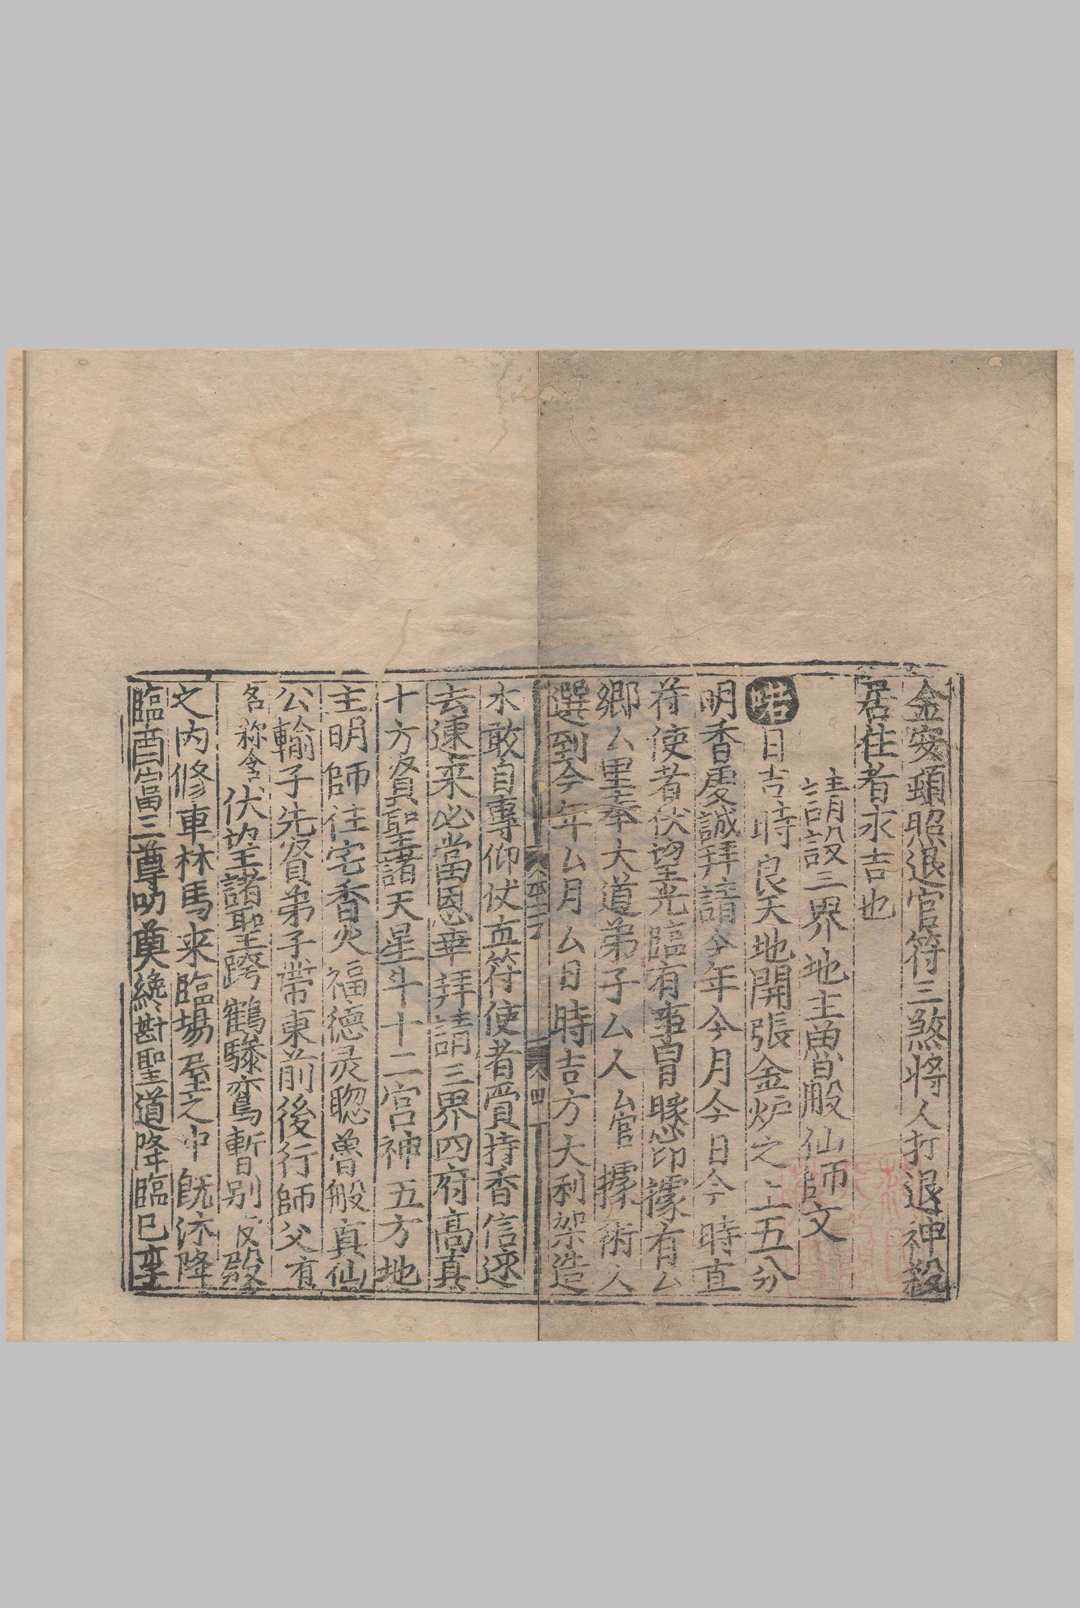 金安頭照退官符三煞將人打退神殺
居住者永吉也
請設三界地主魯般仙師文
日吉時良天地開張金炉之上五分
明香虔誠拜請今年今月今日今時直
符使者伏望光臨有事冒懇㕥據有厶
鄉厶里奉大道弟子厶人厶官據術人
選到今年厶月厶日時吉方大利架造
木敢自專仰仗直符使者賫持香信逕
去速来必當恩華拜請三界四府高真
十方賢聖諸天星斗十二宮神五方地
主明師住宅香火福德灵聪魯般真仙
公輸子先賢弟子帶東前後行師父有
名称舍 伏望諸聖跨鶴驂鸞暫別
之内修車林馬来臨場屋之中既沐降
臨酉當三尊叨奠纔斟聖道降臨已享